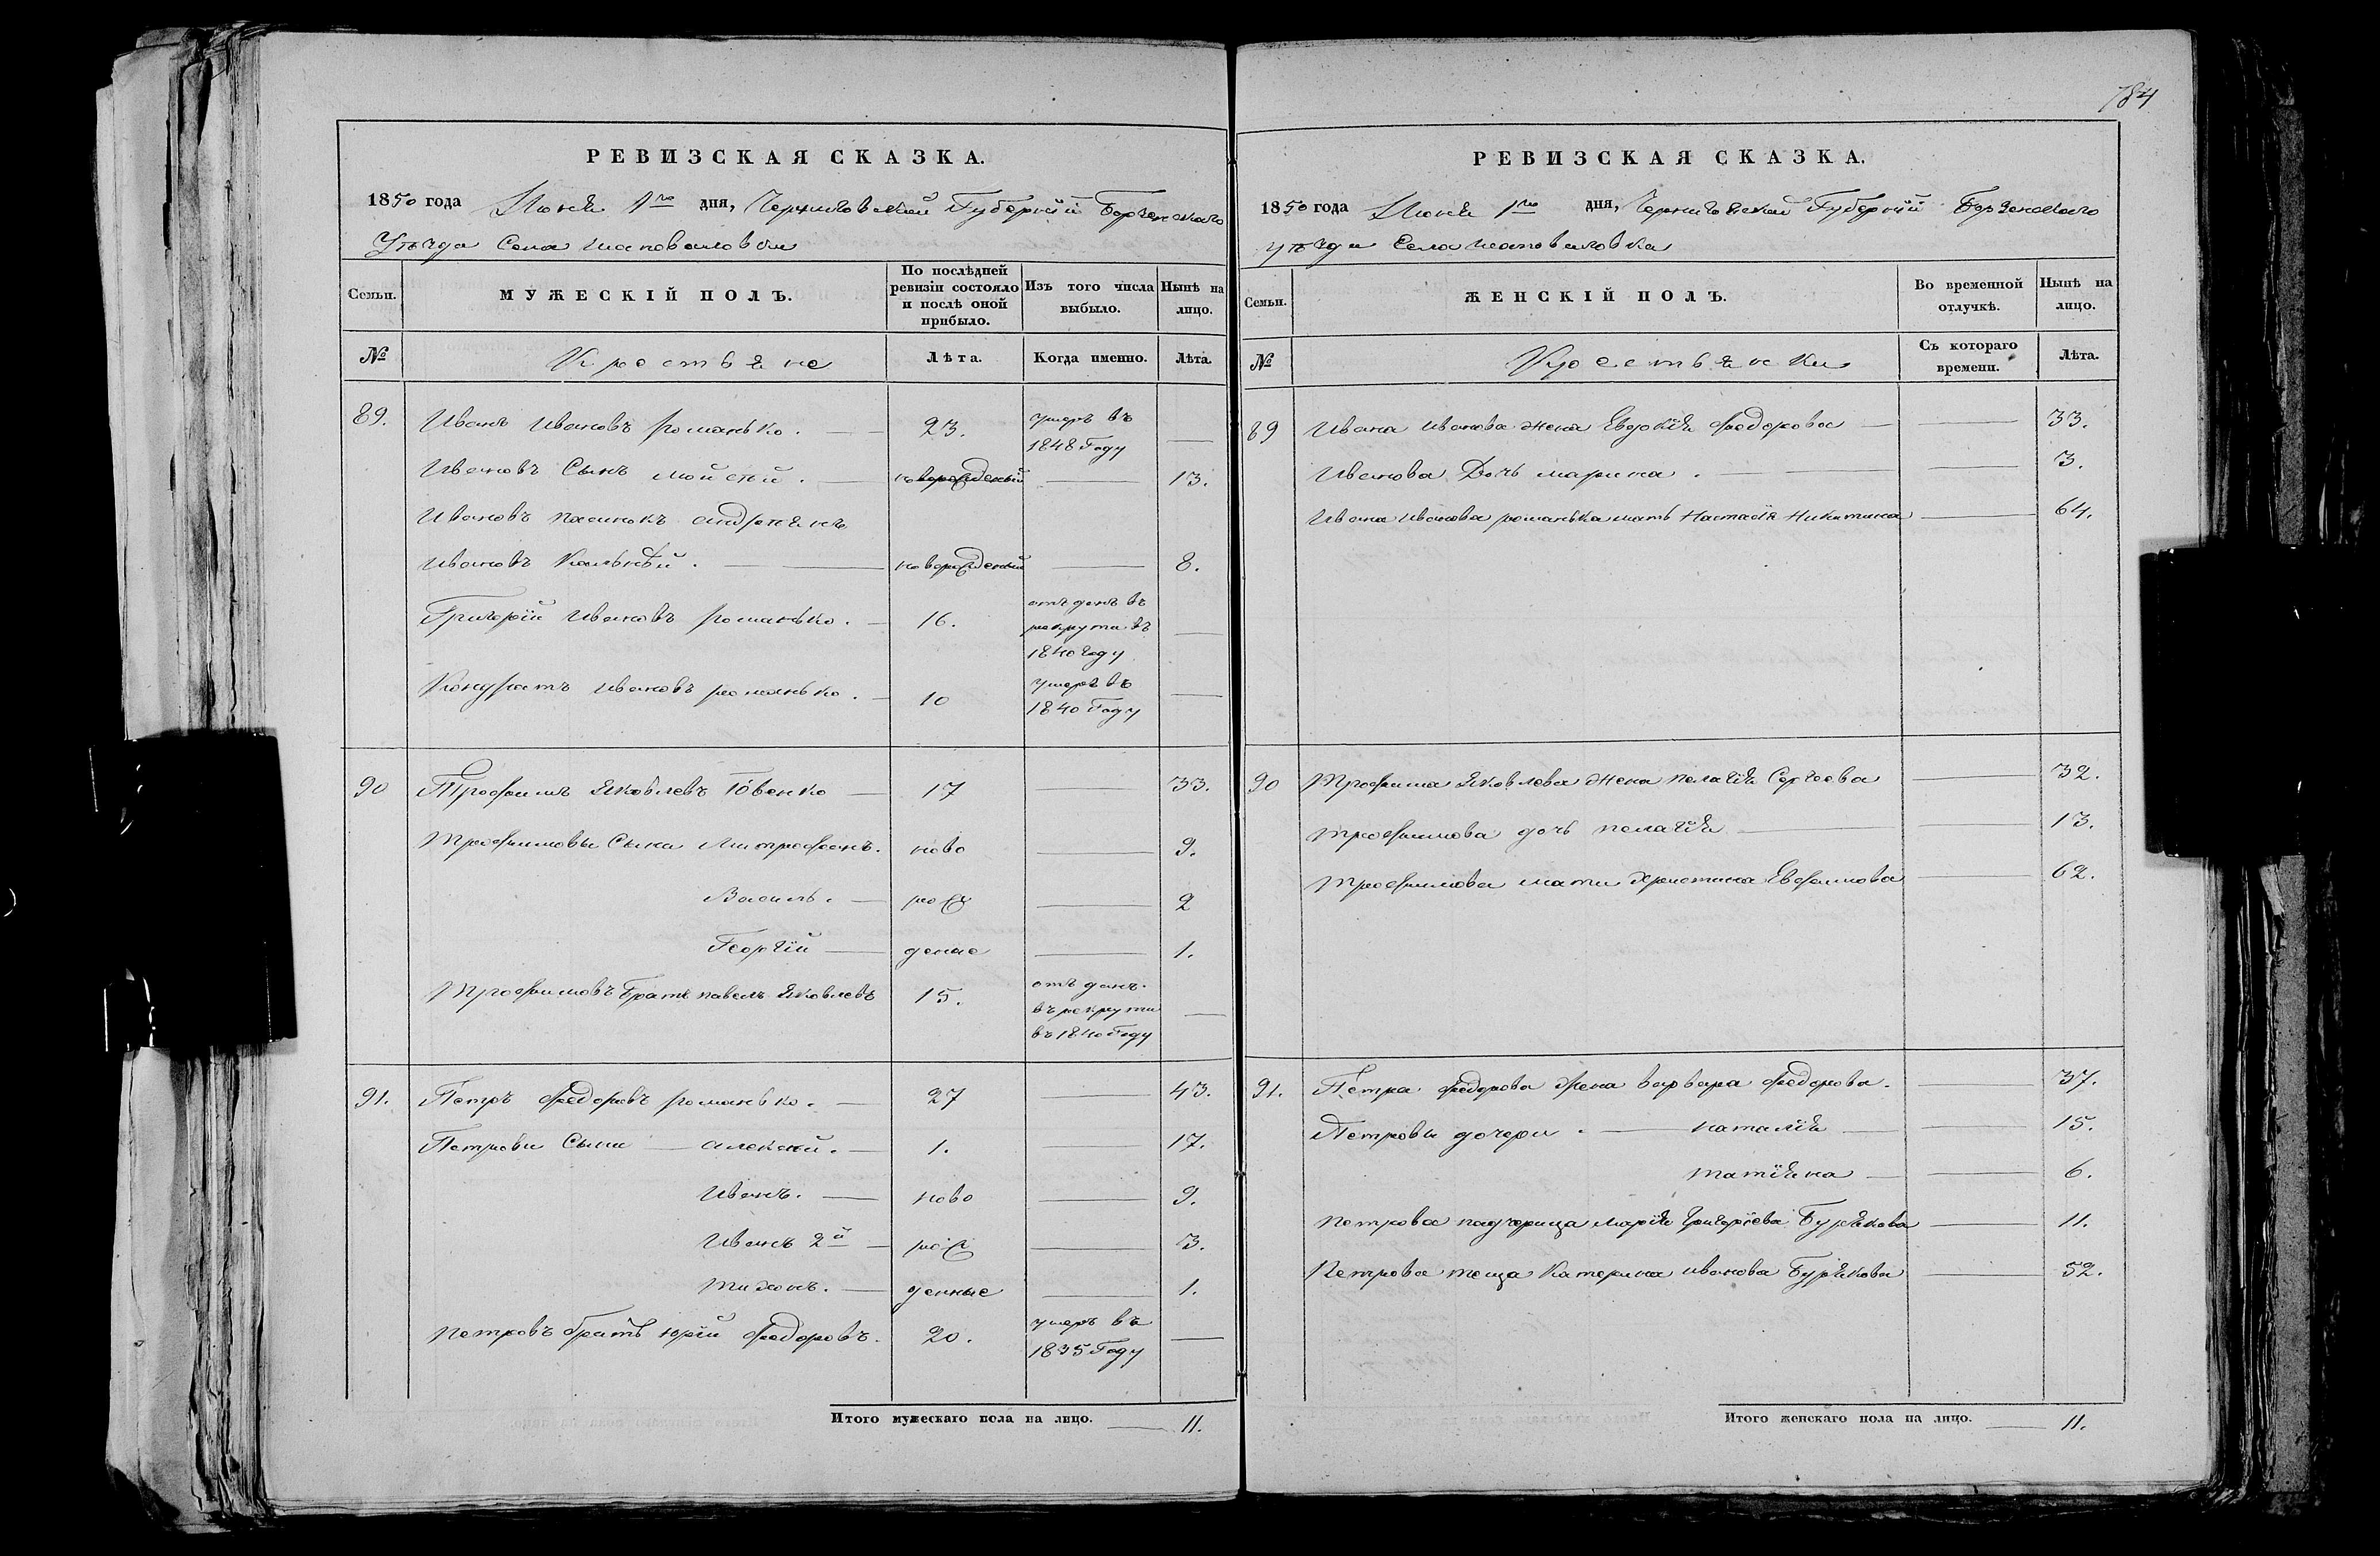 784
РЕВИЗСКАЯ СКАЗКА.
1850 года Июня 1го дня, Черниговской Губернїи Борзенскаго
Уѣзда Села Шаповаловки
Семьи. МУЖЕСКІЙ ПОЛЪ. По послѣдней ревизіи состояло и послѣ оной прибыло. Изъ того числа выбыло. Нынѣ на лицо.
№ Крестьяне Лѣта. Когда именно. Лѣта.
89. Иванъ Ивановъ романько. 23. умеръ въ 1848 Году
Ивановъ Сынъ мойсей. новорожденый 13.
Ивановъ пасинокъ андреянъ
Ивановъ новорожденый 8.
Григорїй Ивановъ романько. 16. отданъ въ рекруты въ 1840 году
Кондратъ Ивановъ романько. 10 умеръ въ 1840 Году
90 Трофимъ Яковлевъ 17 33.
Трофимовы Сыны Митрофанъ. ново 9.
Василь. рож 2
Георгїй деные 1.
Трофимовъ Братъ павелъ Яковлевъ 15. отданъ въ рекруты въ 1840 Году
91. Петръ Федоровъ романько. 27 43.
Петровы Сыны алексей. 1. 17.
Иванъ. ново 9.
Иванъ 2й рож 3.
тихонъ. денные 1.
петровъ братъ юрїй Федоровъ. 20. умеръ въ 1835 Году
Итого мужескаго пола на лицо. 11.
РЕВИЗСКАЯ СКАЗКА.
1850 года Июня 1го дня, Черниговской Губернїи Борзенскаго
уѣзда Села шаповаловка
Семьи. ЖЕНСКІЙ ПОЛЪ. Во временной отлучкѣ. Нынѣ на лицо.
№ Крестьянки Съ котораго времени. Лѣта.
89 Ивана Иванова жена Евдокїя Федорова 33.
Иванова Дочь марина. 3.
Ивана Иванова романька мать Настасїя Никитина 64.
90 Трофима Яковлева жена пелагїя Сергеева 32.
трофимова дочь пелагїя 13.
трофимова мати христина Евфимова 62.
91. Петра Федорова жена варвара Федорова. 37.
Петровы дочери наталїя 15.
татїяна 6.
петрова падчерица марїя григорїева Бурякова 11.
Петрова теща Катерина иванова Бурякова 52.
Итого женскаго пола на лицо. 11.